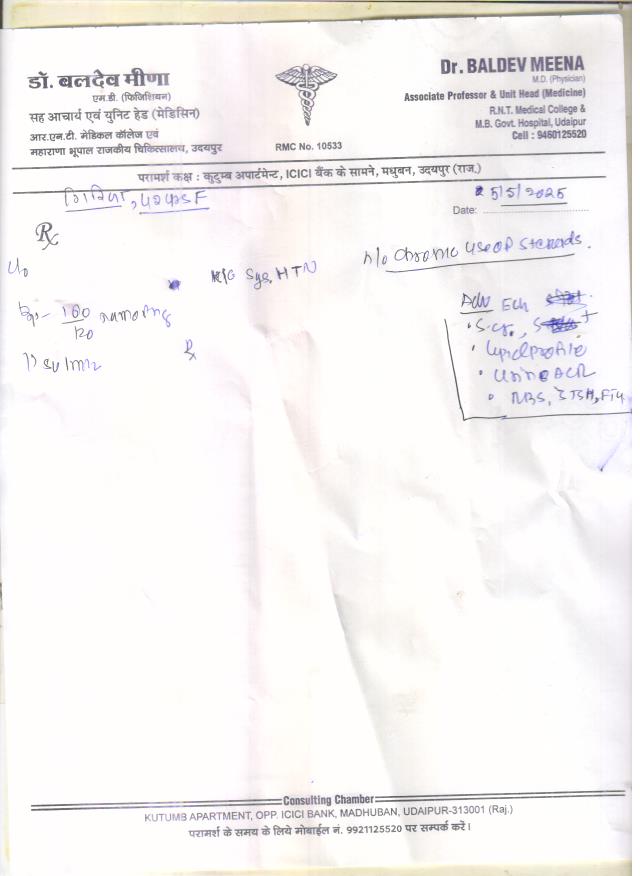 डॉ. बलदेव मीणा
एम.डी. (फिजिशियन)
सह आचार्य एवं युनिट हेड (मेडिसिन)
आर.एन.टी. मेडिकल कॉलेज एवं
महाराणा भूपाल राजकीय चिकित्सालय, उदयपुर
RMC No. 10533
Dr. BALDEV MEENA
M.D. (Physician)
Associate Professor & Unit Head (Medicine)
R.N.T. Medical College &
M.B. Govt. Hospital, Udaipur
Cell : 9460125520
परामर्श कक्ष : कुटुम्ब अपार्टमेन्ट, ICICI बैंक के सामने, मधुबन, उदयपुर (राज.)
5/5/2025
Date:
Rx
K/C Sys. HTN
h/o Chronic use of steroids.
160/120 mmHg
Adv
S.cr.,
Lipid profile
Urine ACR
RBS, STSH, FT4
Consulting Chamber
KUTUMB APARTMENT, OPP. ICICI BANK, MADHUBAN, UDAIPUR-313001 (Raj.)
परामर्श के समय के लिये मोबाईल नं. 9921125520 पर सम्पर्क करें।